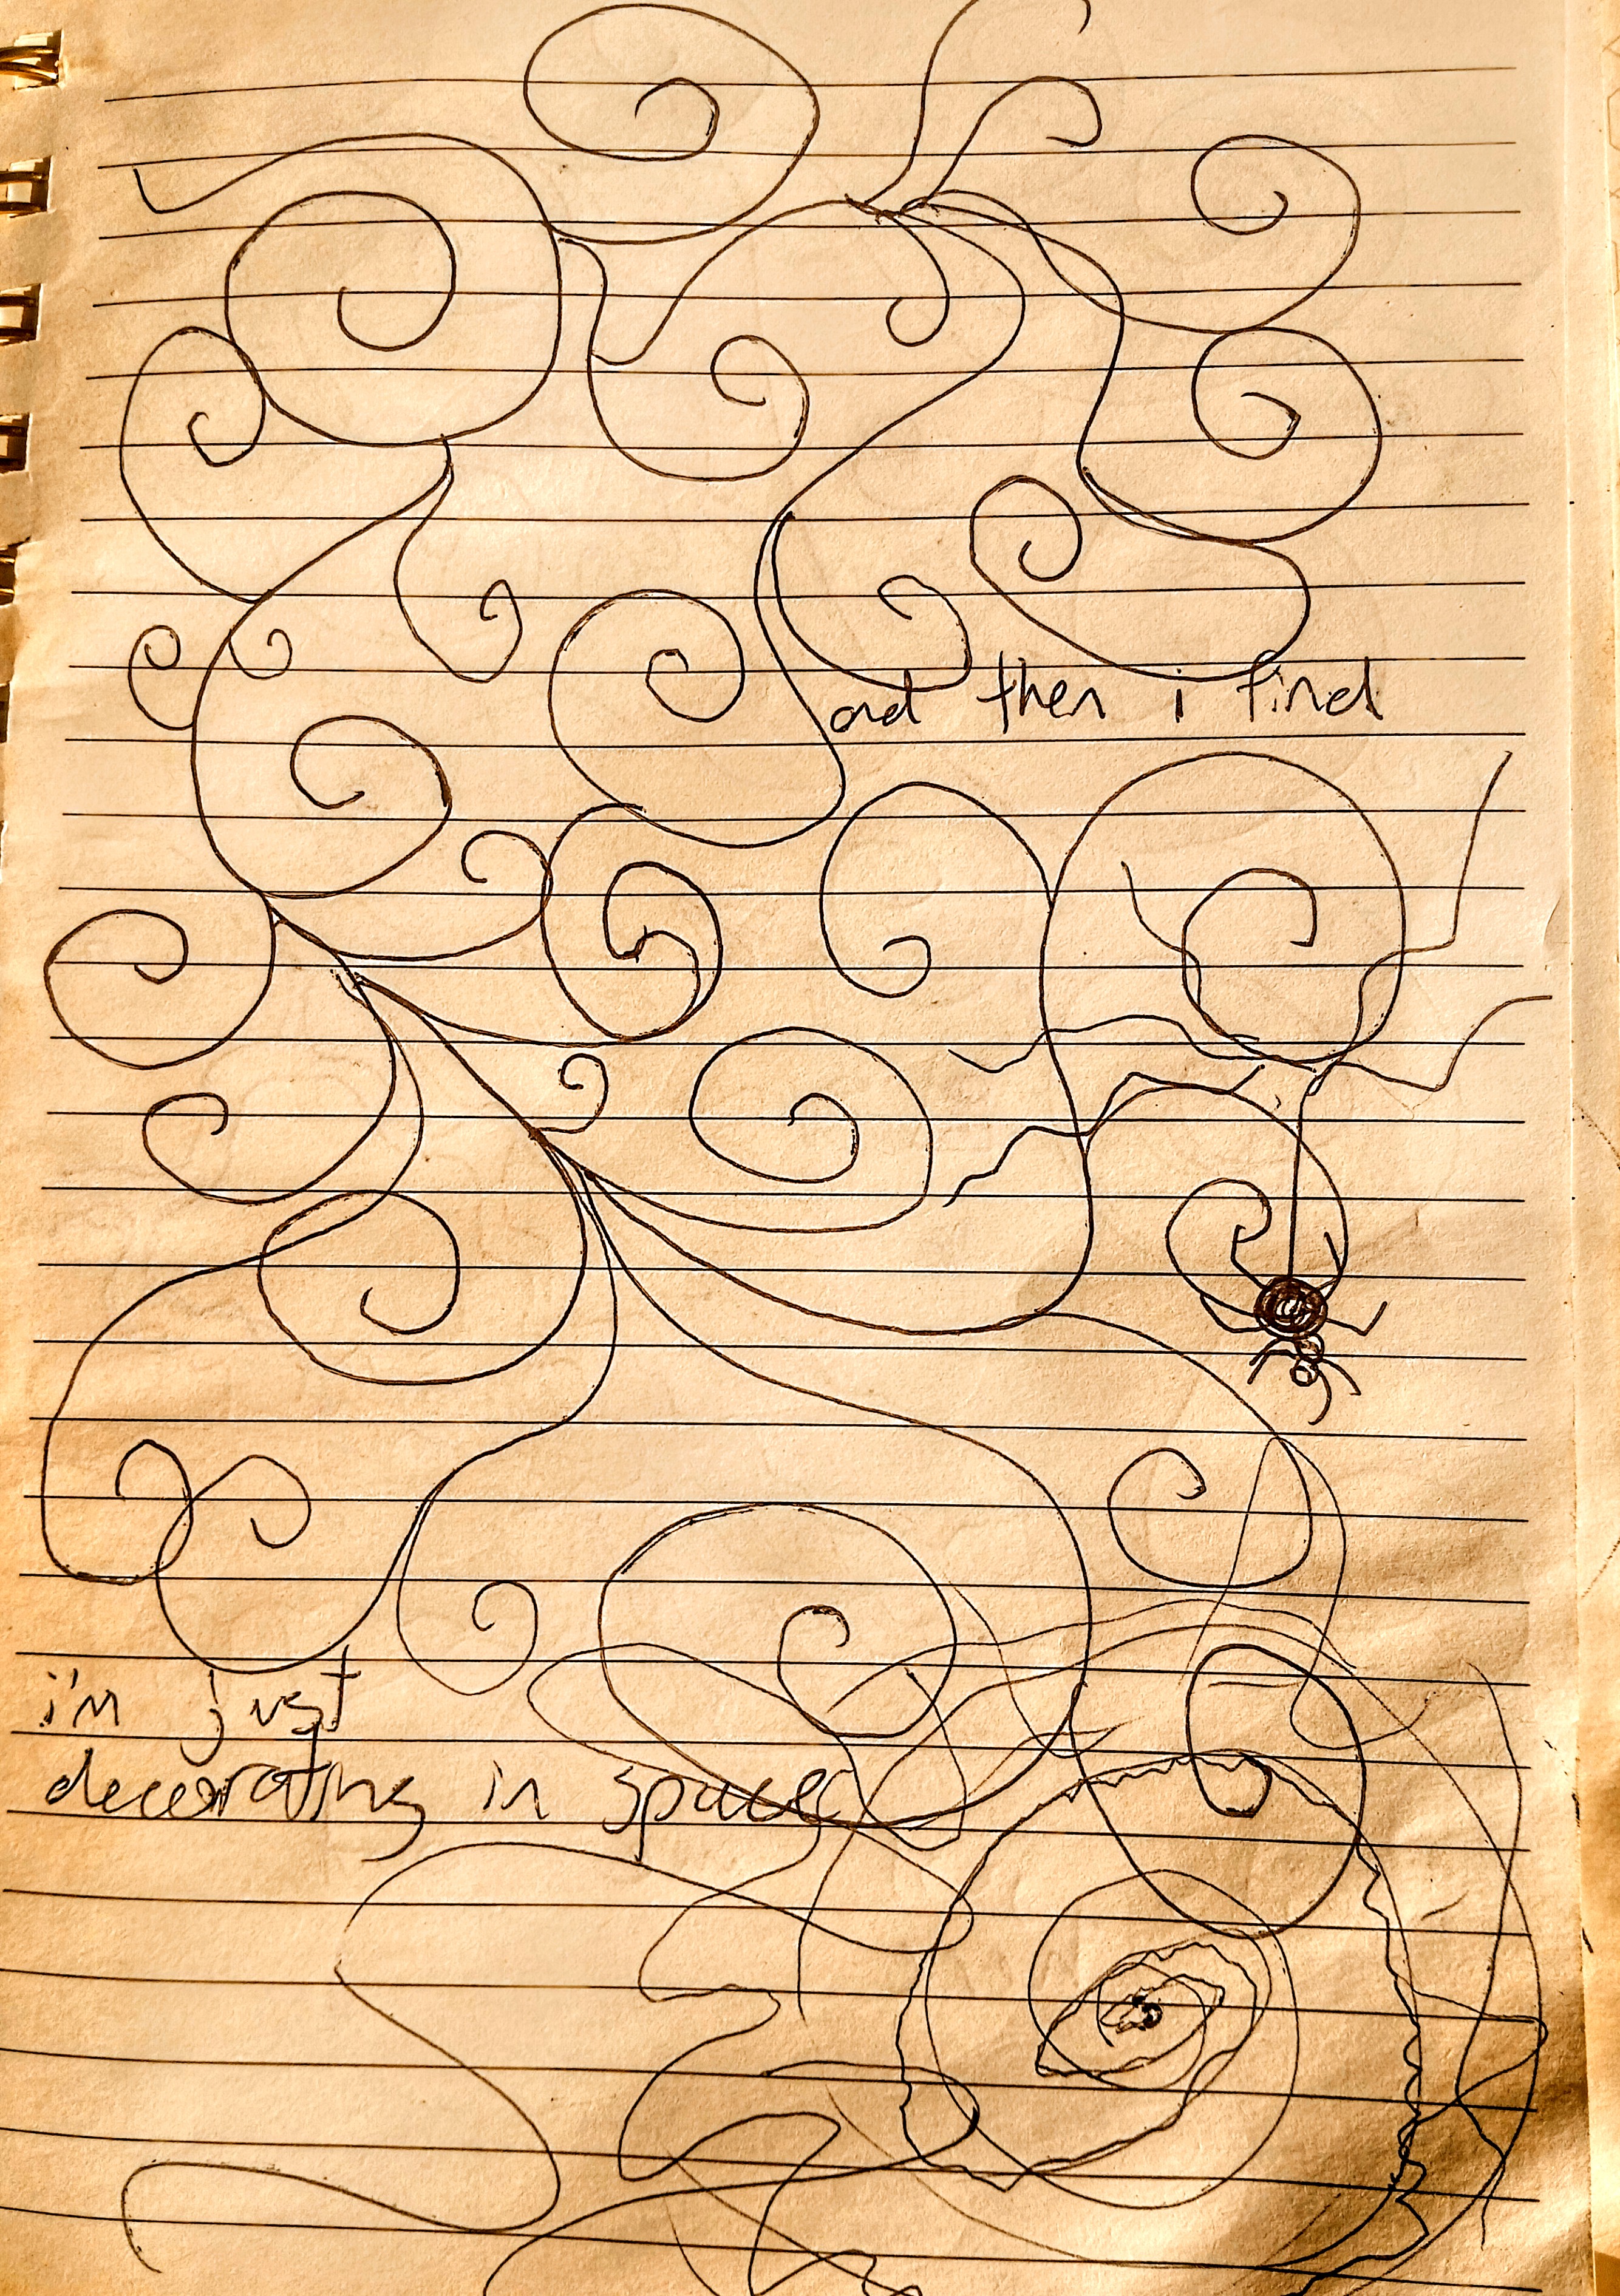 and then i find
i'm just
decorating in space